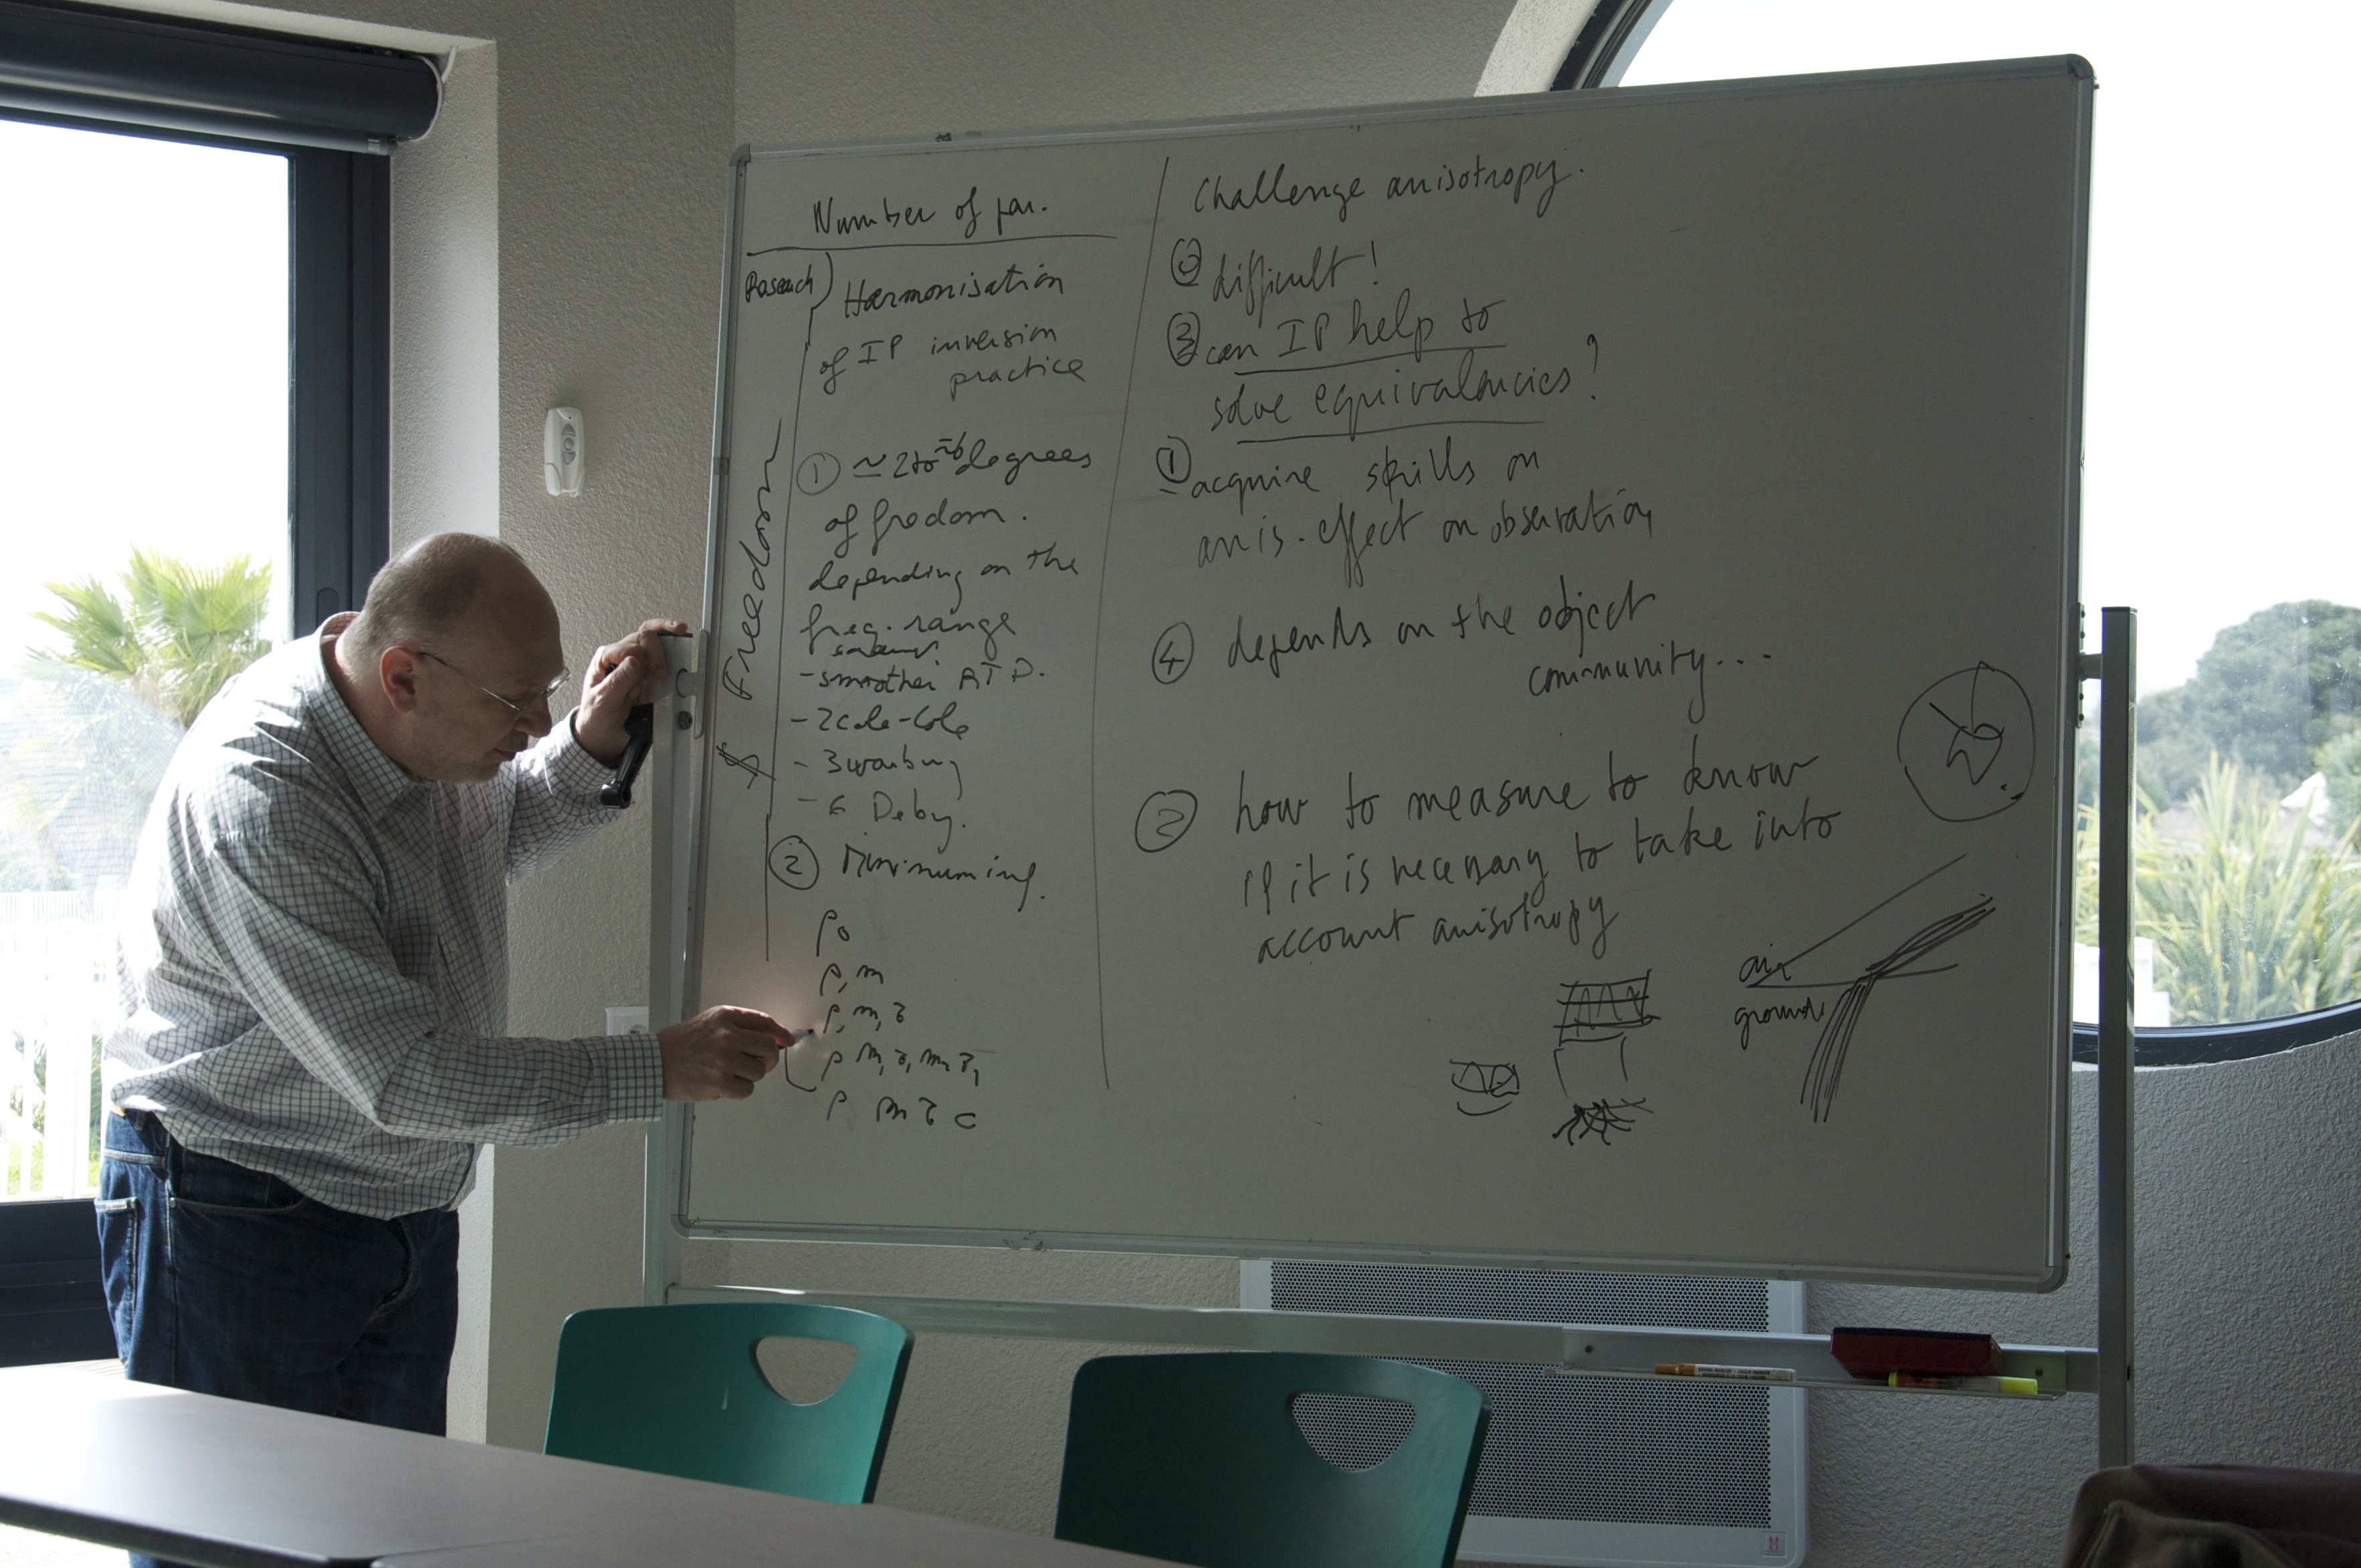 Number of par.
Reseach
Harmonisation
of IP inversion
practice
$ Freedom
① ≃ 2 to ~6 degrees
of fredom.
depending on the
freq. range
- smoother RTD.
- 2 Cole-Cole
- 3 warburg
- 6 Deby.
②
ρ0
ρ, m
ρ, m, τ
ρ m, τ, m2 τ1
ρ m τ c
Challenge anisotropy.
⓪ difficult!
③ can IP help to
solve equivalencies?
① acquire skills on
anis. effect on observation
④ depends on the object
community...
② how to measure to know
if it is necessary to take into
account anisotropy
air
ground